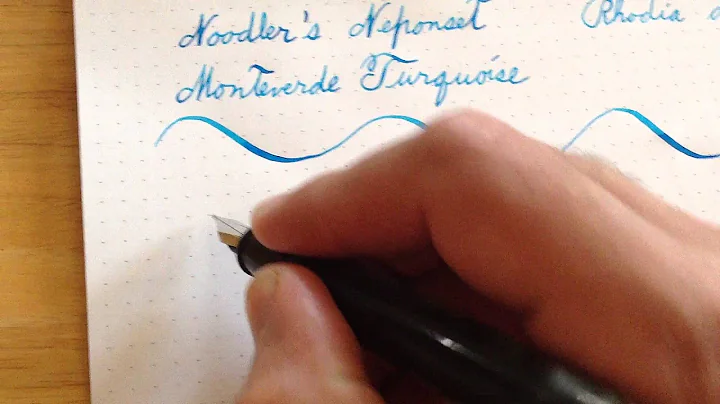 Noodler's Neponset
Monteverde Turquoise
Rhodia